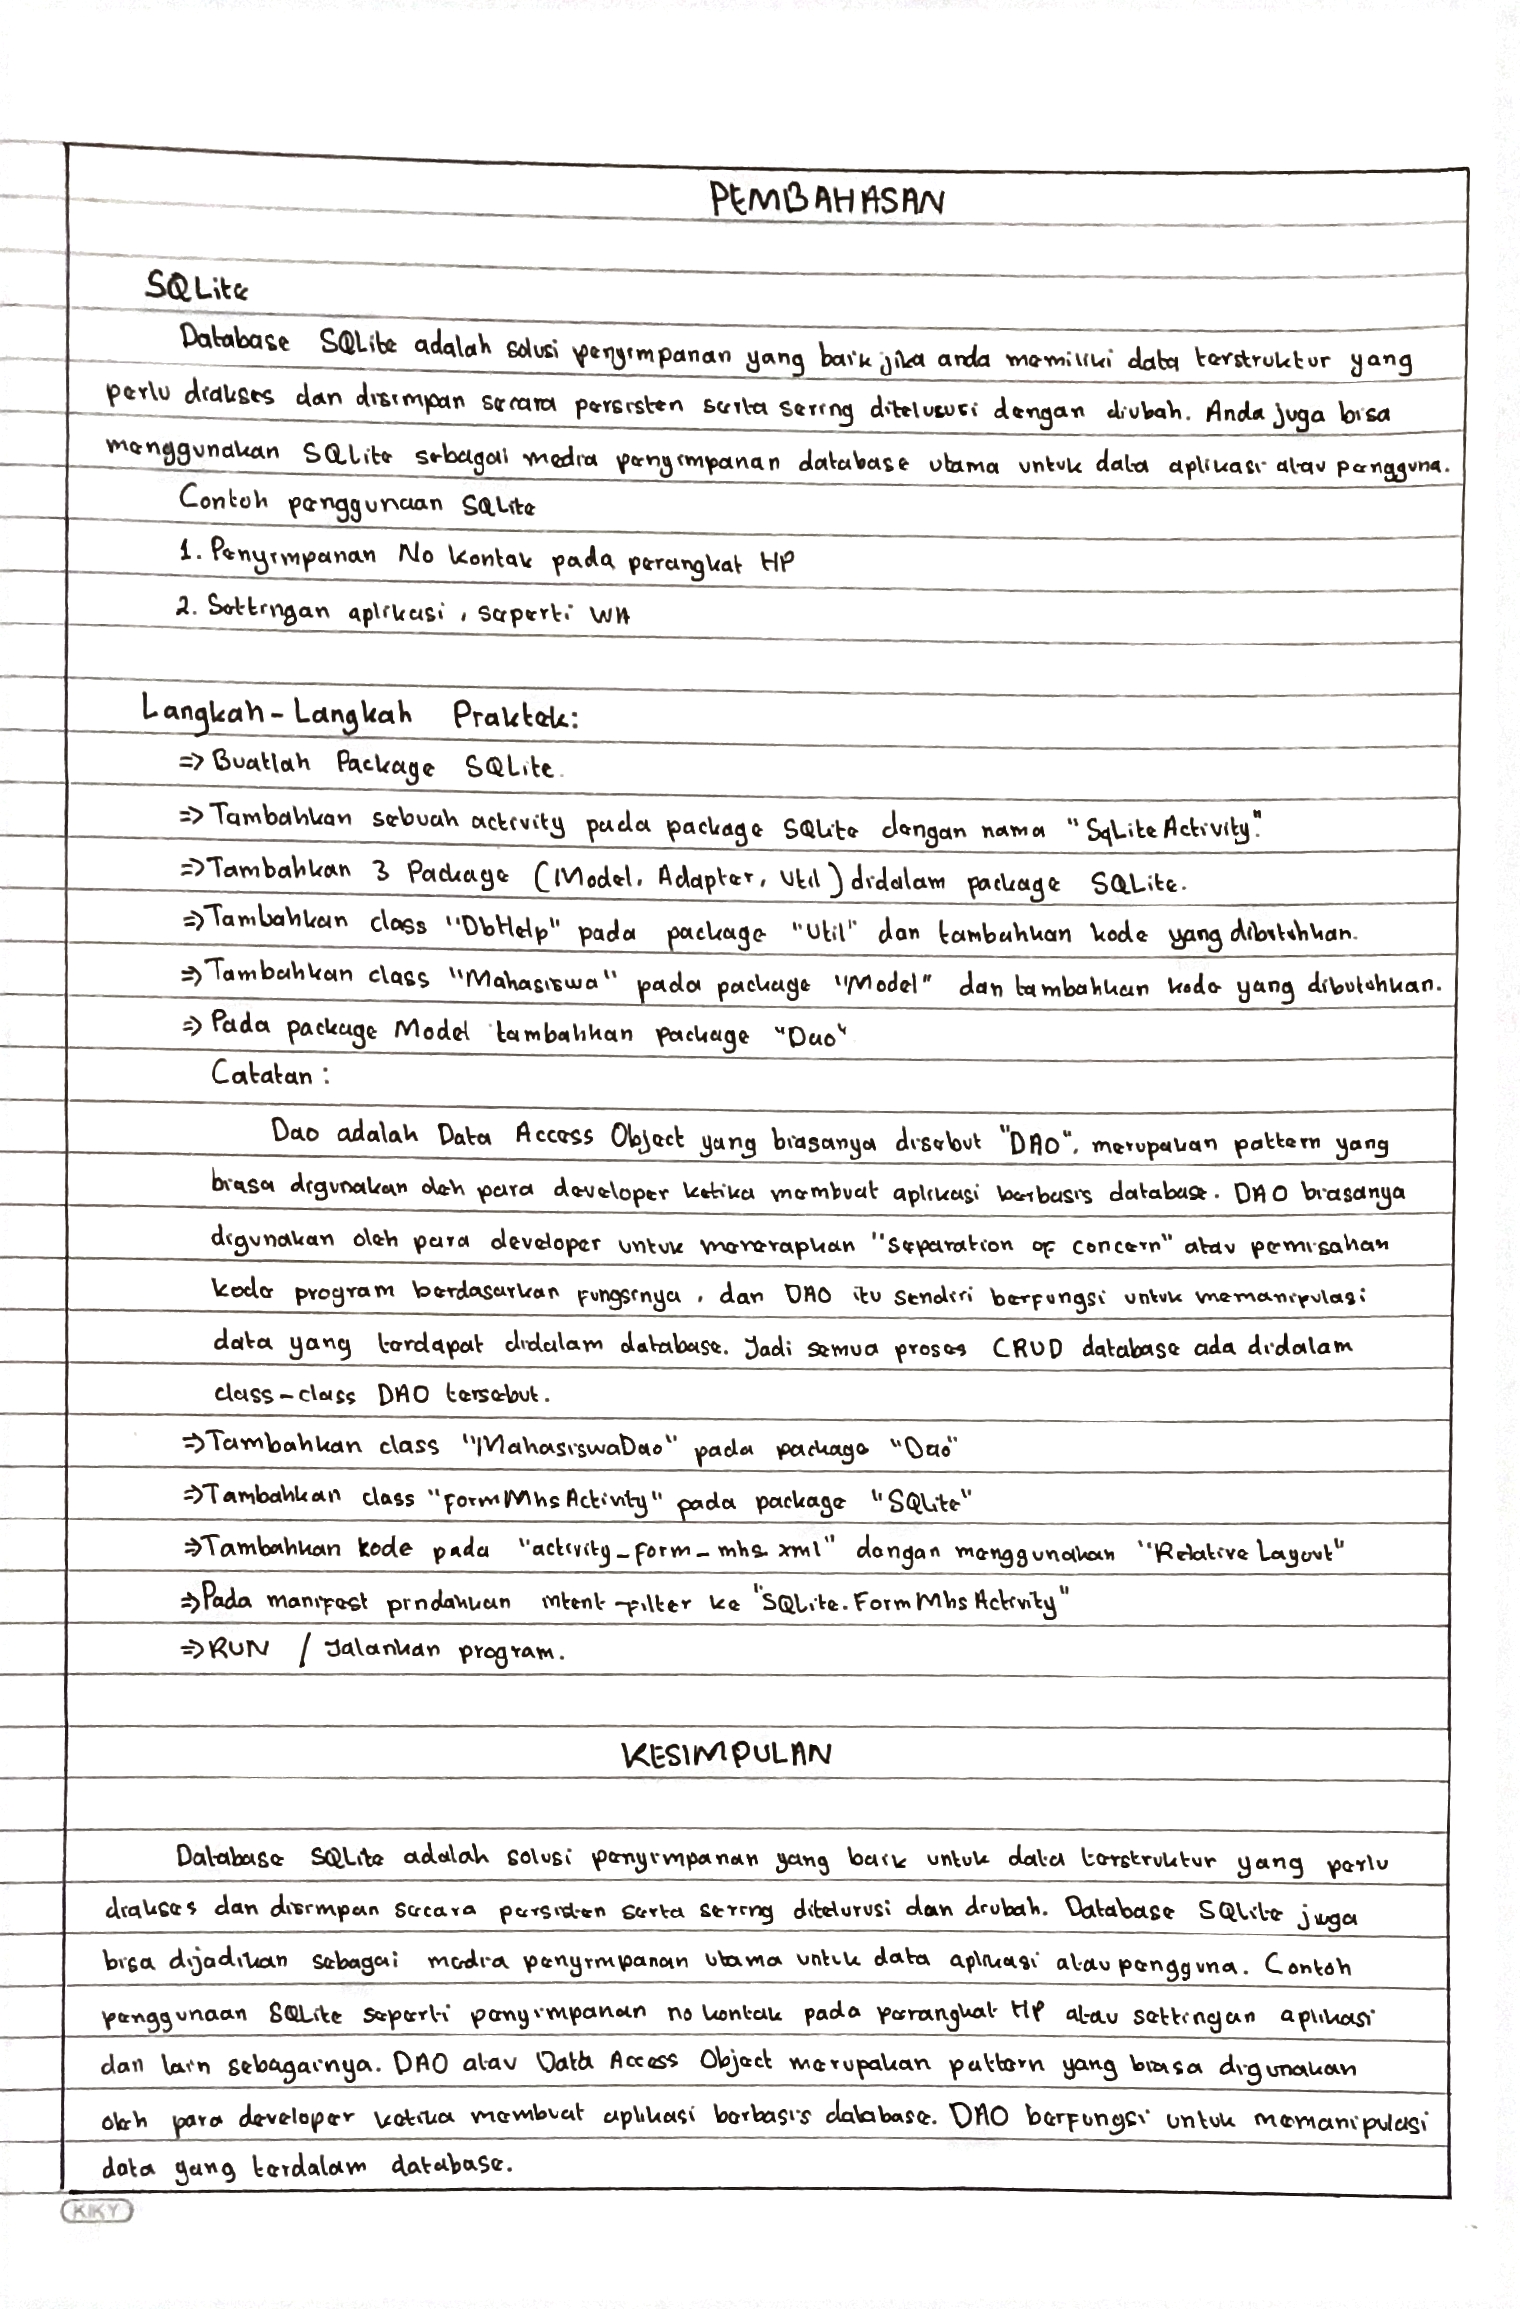 PEMBAHASAN
SQLite
Database SQLite adalah solusi penyimpanan yang baik jika anda memiliki data terstruktur yang
perlu diakses dan disimpan secara persisten serta sering ditelusuri dengan diubah. Anda juga bisa
menggunakan SQLite sebagai media penyimpanan database utama untuk data aplikasi atau pengguna.
Contoh penggunaan SQLite
1. Penyimpanan No kontak pada perangkat HP
2. Settingan aplikasi, seperti WA
Langkah-Langkah Praktek:
=> Buatlah Package SQLite.
=> Tambahkan sebuah activity pada package SQLite dengan nama "SqLiteActivity".
=> Tambahkan 3 Package (Model, Adapter, Util) didalam package SQLite.
=> Tambahkan class "DbHelp" pada package "Util" dan tambahkan kode yang dibutuhkan.
=> Tambahkan class "Mahasiswa" pada package "Model" dan tambahkan kode yang dibutuhkan.
=> Pada package Model tambahkan package "Dao"
Catatan :
Dao adalah Data Access Object yang biasanya disebut "DAO", merupakan pattern yang
biasa digunakan oleh para developer ketika membuat aplikasi berbasis database. DAO biasanya
digunakan oleh para developer untuk menerapkan "separation of concern" atau pemisahan
kode program berdasarkan fungsinya, dan DAO itu sendiri berfungsi untuk memanipulasi
data yang terdapat didalam database. Jadi semua proses CRUD database ada didalam
class-class DAO tersebut.
=> Tambahkan class "MahasiswaDao" pada package "Dao"
=> Tambahkan class "FormMhsActivity" pada package "SQLite"
=> Tambahkan kode pada "activity_form_mhs.xml" dengan menggunakan "Relative Layout"
=> Pada manifest pindahkan intent-filter ke "SQLite.FormMhsActivity"
=> RUN / Jalankan program.
KESIMPULAN
Database SQLite adalah solusi penyimpanan yang baik untuk data terstruktur yang perlu
diakses dan disimpan secara persisten serta sering ditelurusi dan diubah. Database SQLite juga
bisa dijadikan sebagai media penyimpanan utama untuk data aplikasi atau pengguna. Contoh
penggunaan SQLite seperti penyimpanan no kontak pada perangkat HP atau settingan aplikasi
dan lain sebagainya. DAO atau Data Access Object merupakan pattern yang biasa digunakan
oleh para developer ketika membuat aplikasi berbasis database. DAO berfungsi untuk memanipulasi
data yang terdalam database.
KIKY